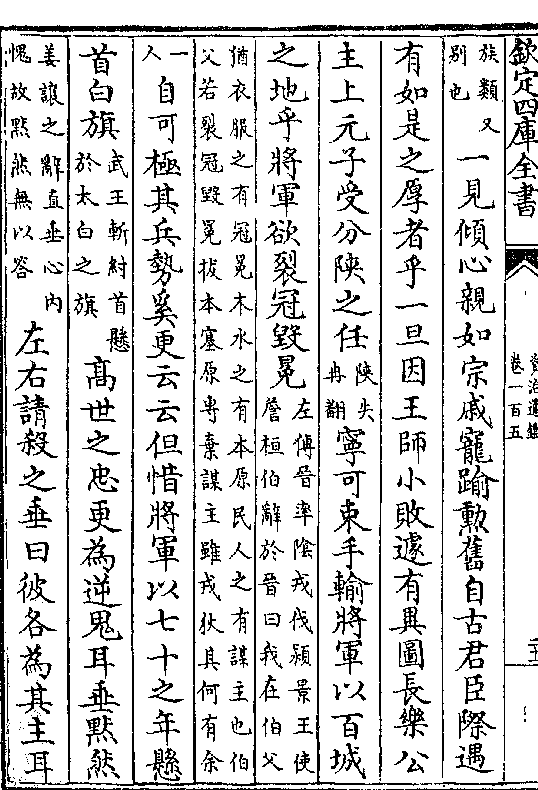 欽定四庫全書
資治通鑑
卷一百五
族類又
别也
一見傾心親如宗戚寵踰勲舊自古君臣際遇
有如是之厚者乎一旦因王師小敗遽有異圖長樂公
主上元子受分陜之任
陜失
冉翻
寧可束手輸將軍以百城
之地乎將軍欲裂冠毀冕
左傳晉率陰戎伐潁景王使
詹桓伯辭於晉曰我在伯父
猶衣服之有冠冕木水之有本原民人之有謀主也伯
父若裂冠毀冕拔本塞原専棄謀主雖戎狄其何有余
一
人
自可極其兵勢奚更云云但惜將軍以七十之年懸
首白旗
武王斬紂首懸
於太白之旗
髙世之忠更為逆鬼耳垂黙然
姜讓之辭直垂心内
愧故黙然無以答
左右請殺之垂曰彼各為其主耳